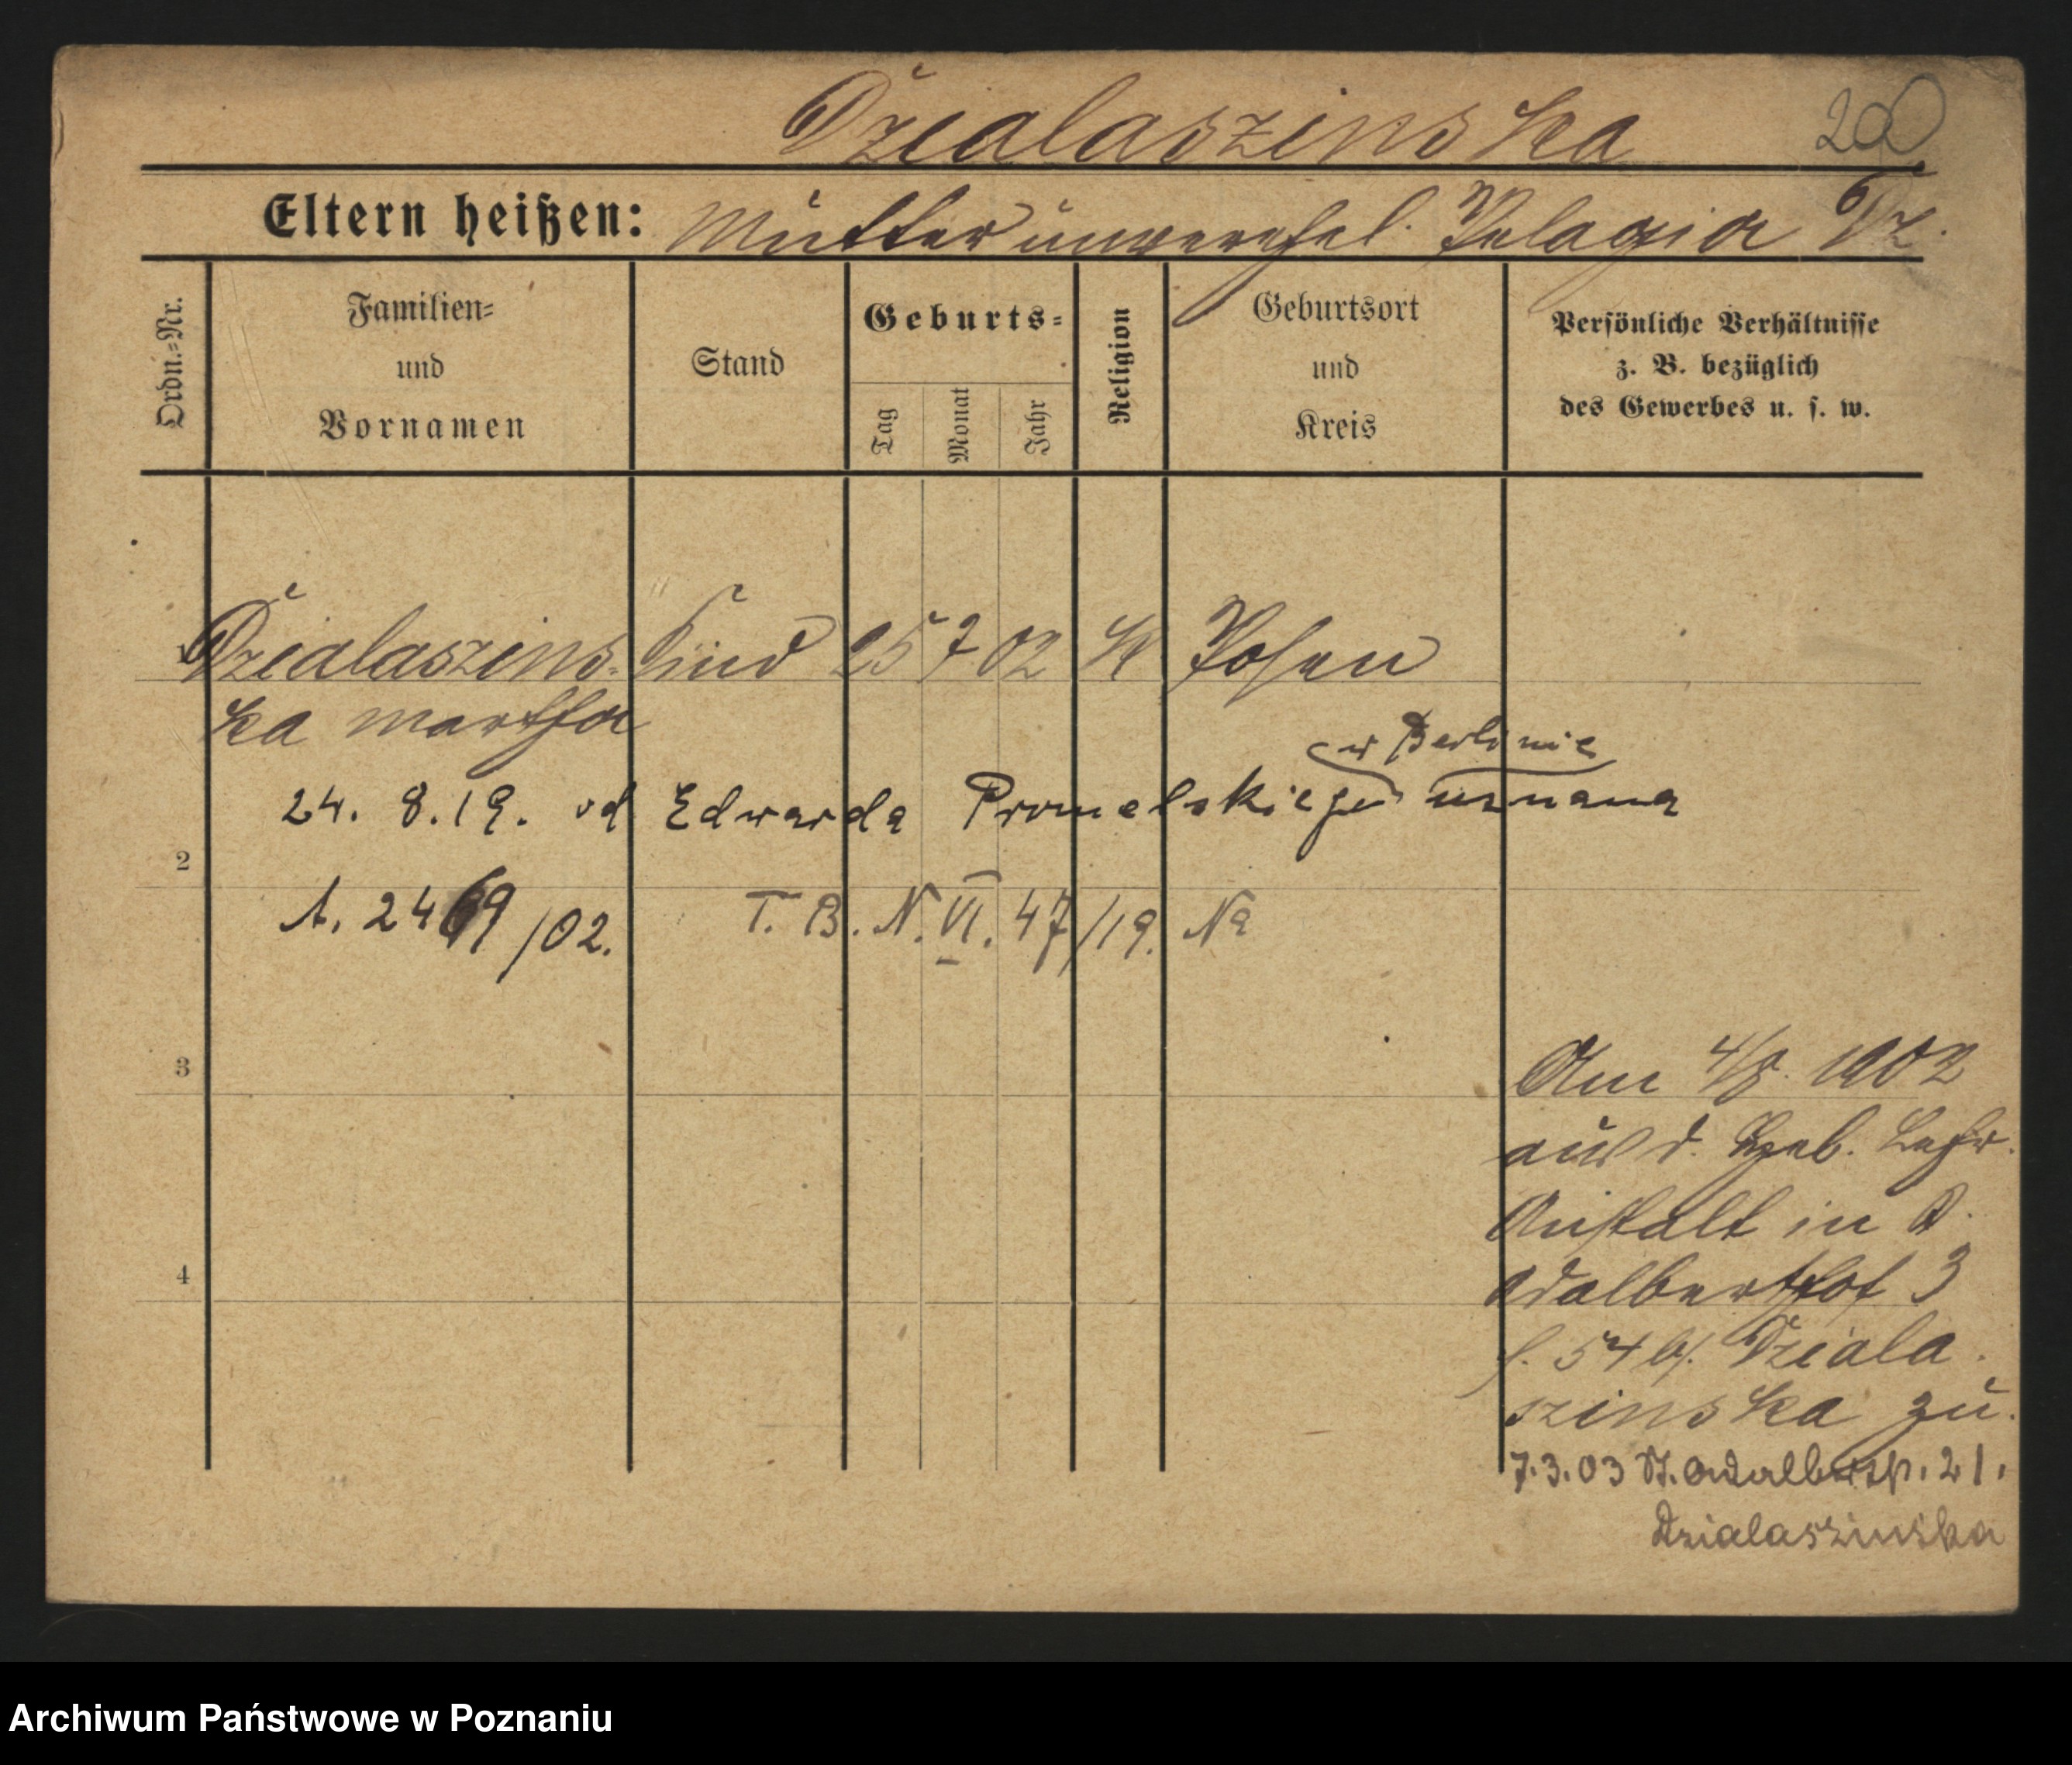 Dzialaszinska 200
Eltern heißen: Mutter unverehel. Pelagia Dz.
Ordn.-Nr.
Familien- und Vornamen
Stand
Geburts-
Tag
Monat
Jahr
Religion
Geburtsort und Kreis
Persönliche Verhältnisse
z. B. bezüglich
des Gewerbes u. s. w.
1 Dzialaszins- Kind 25 7 02 K Posen
ka Martha
w Berlinie
24. 8. 19. od Edwarda Promelskiego uznana
2
A. 2469/02. T. B. N. VI. 47/19. Na
3
Am 4/8. 1902
aus d. Heb. Lehr.
Anstalt in
Adalberthof 3
Dziala
szinska zu.
7.3.03 St. Adalbertstr. 21.
Dzialaszinska
4
Archiwum Państwowe w Poznaniu